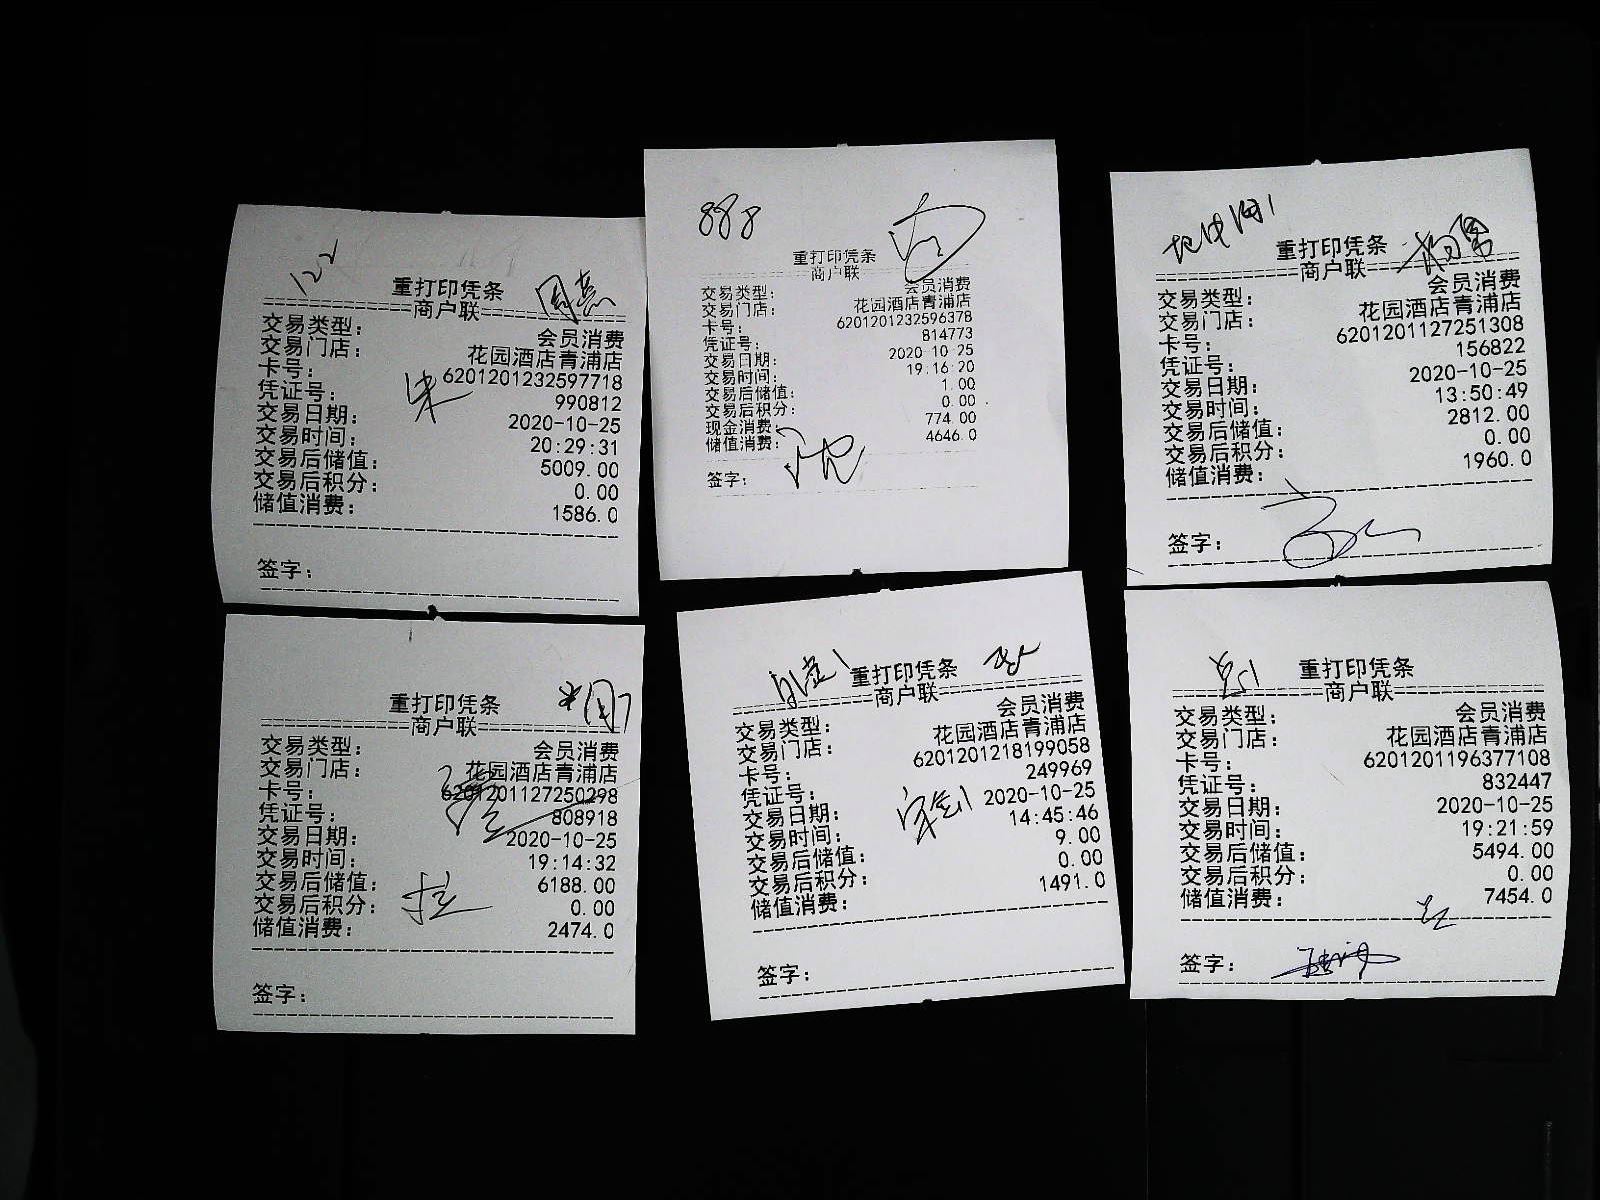 122
重打印凭条
商户联
交易类型: 会员消费
交易门店: 花园酒店青浦店
卡号: 6201201232597718
凭证号: 990812
交易日期: 2020-10-25
交易时间: 20:29:31
交易后储值: 5009.00
交易后积分: 0.00
储值消费: 1586.0
签字:
888
重打印凭条
商户联
交易类型: 会员消费
交易门店: 花园酒店青浦店
卡号: 6201201232596378
凭证号: 814773
交易日期: 2020-10-25
交易时间: 19:16:20
交易后储值: 1.00
交易后积分: 0.00
现金消费: 774.00
储值消费: 4646.0
签字:
重打印凭条
商户联
交易类型: 会员消费
交易门店: 花园酒店青浦店
卡号: 6201201127251308
凭证号: 156822
交易日期: 2020-10-25
交易时间: 13:50:49
交易后储值: 2812.00
交易后积分: 0.00
储值消费: 1960.0
签字:
重打印凭条
商户联
交易类型: 会员消费
交易门店: 花园酒店青浦店
卡号: 6201201127250298
凭证号: 808918
交易日期: 2020-10-25
交易时间: 19:14:32
交易后储值: 6188.00
交易后积分: 0.00
储值消费: 2474.0
签字:
重打印凭条
商户联
交易类型: 会员消费
交易门店: 花园酒店青浦店
卡号: 6201201218199058
凭证号: 249969
交易日期: 2020-10-25
交易时间: 14:45:46
交易后储值: 9.00
交易后积分: 0.00
储值消费: 1491.0
签字:
重打印凭条
商户联
交易类型: 会员消费
交易门店: 花园酒店青浦店
卡号: 6201201196377108
凭证号: 832447
交易日期: 2020-10-25
交易时间: 19:21:59
交易后储值: 5494.00
交易后积分: 0.00
储值消费: 7454.0
签字: